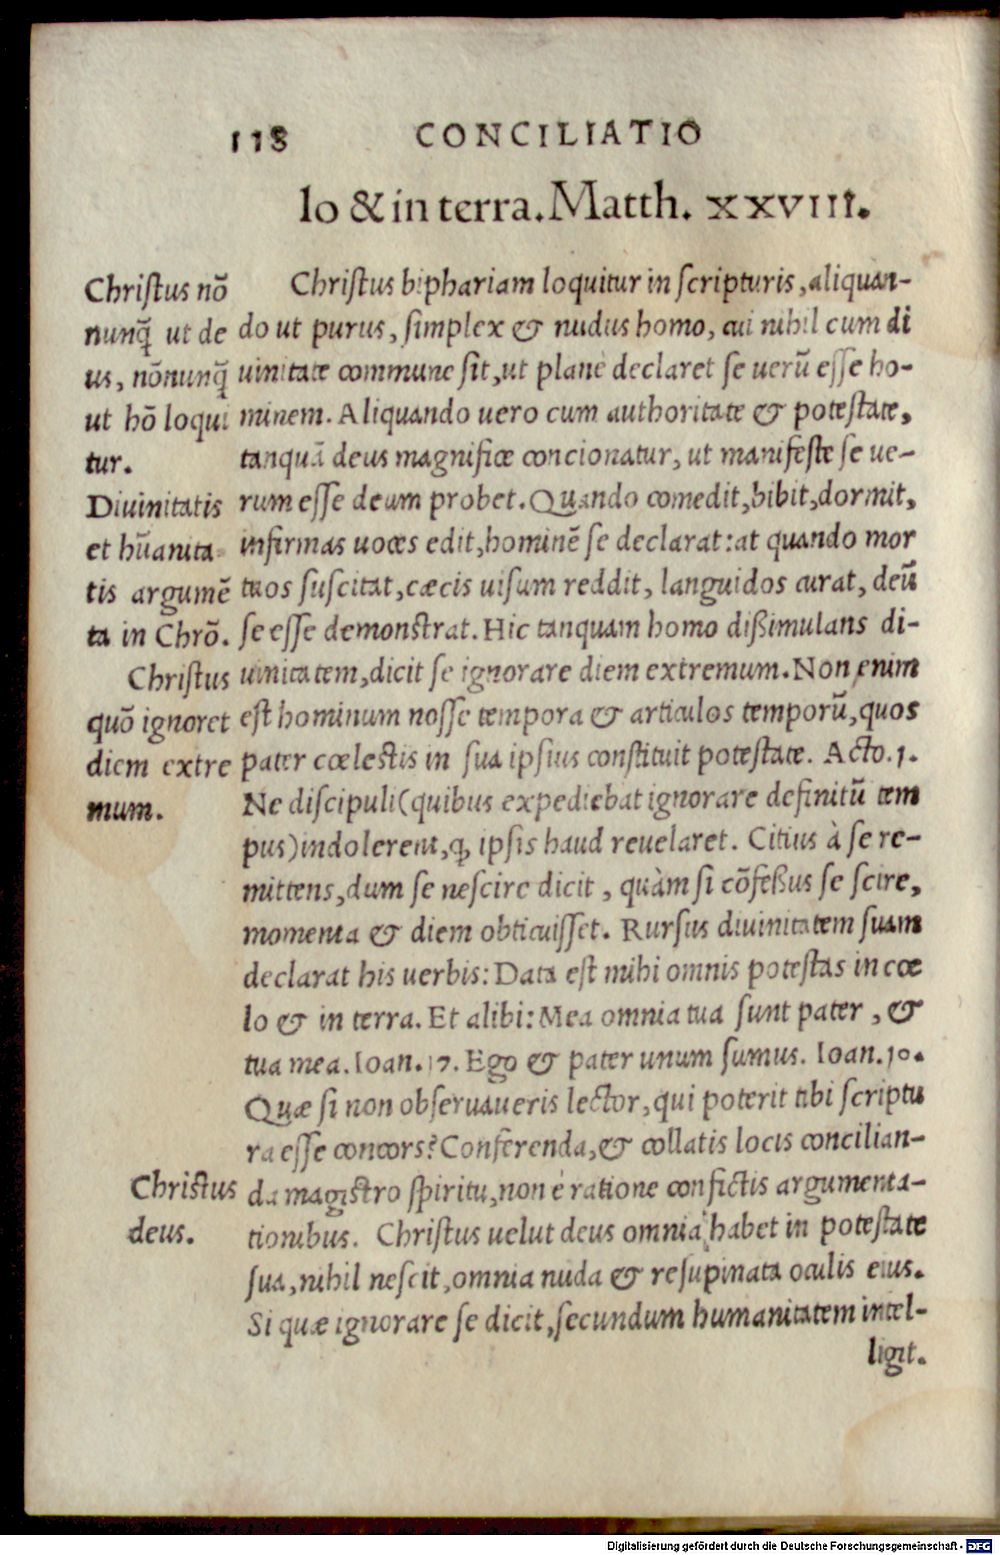 118 CONCILIATIO
lo & in terra. Matth. XXVIII.
Christus nō
nunq̃ ut de
us, nōnunq̃
ut hō loqui
tur.
Diuinitatis
et hūanita
tis argumē
ta in Chrō.
Christus
quō ignoret
diem extre
mum.
Christus
deus.
Christus biphariam loquitur in ſcripturis, aliquan-
do ut purus, ſimplex & nudus homo, cui nihil cum di
uinitate commune ſit, ut planè declaret ſe uerū eſſe ho-
minem. Aliquando uero cum authoritate & poteſtate,
tanquā deus magnifice concionatur, ut manifeſte ſe ue-
rum eſſe deum probet. Quando comedit, bibit, dormit,
infirmas uoces edit, hominē ſe declarat: at quando mor
tuos ſuſcitat, cæcis uiſum reddit, languidos curat, deū
ſe eſſe demonſtrat. Hic tanquam homo dißimulans di-
uinitatem, dicit ſe ignorare diem extremum. Non enim
eſt hominum noſſe tempora & articulos temporū, quos
pater cœleſtis in ſua ipſius conſtituit poteſtate. Acto. 1.
Ne diſcipuli (quibus expediebat ignorare definitū tem
pus) indolerent, ꝙ ipſis haud reuelaret. Citius à ſe re-
mittens, dum ſe neſcire dicit, quàm ſi cōfeßus ſe ſcire,
momenta & diem obticuiſſet. Rurſus diuinitatem ſuam
declarat his uerbis: Data eſt mihi omnis poteſtas in cœ
lo & in terra. Et alibi: Mea omnia tua ſunt pater, &
tua mea. Ioan. 17. Ego & pater unum ſumus. Ioan. 10.
Quæ ſi non obſeruaueris lector, qui poterit tibi ſcriptu
ra eſſe concors? Conferenda, & collatis locis concilian-
da magiſtro ſpiritu, non è ratione confictis argumenta-
tionibus. Christus uelut deus omnia habet in poteſtate
ſua, nihil neſcit, omnia nuda & reſupinata oculis eius.
Si quæ ignorare ſe dicit, ſecundum humanitatem intel-
ligit.
Digitalisierung gefördert durch die Deutsche Forschungsgemeinschaft - DFG